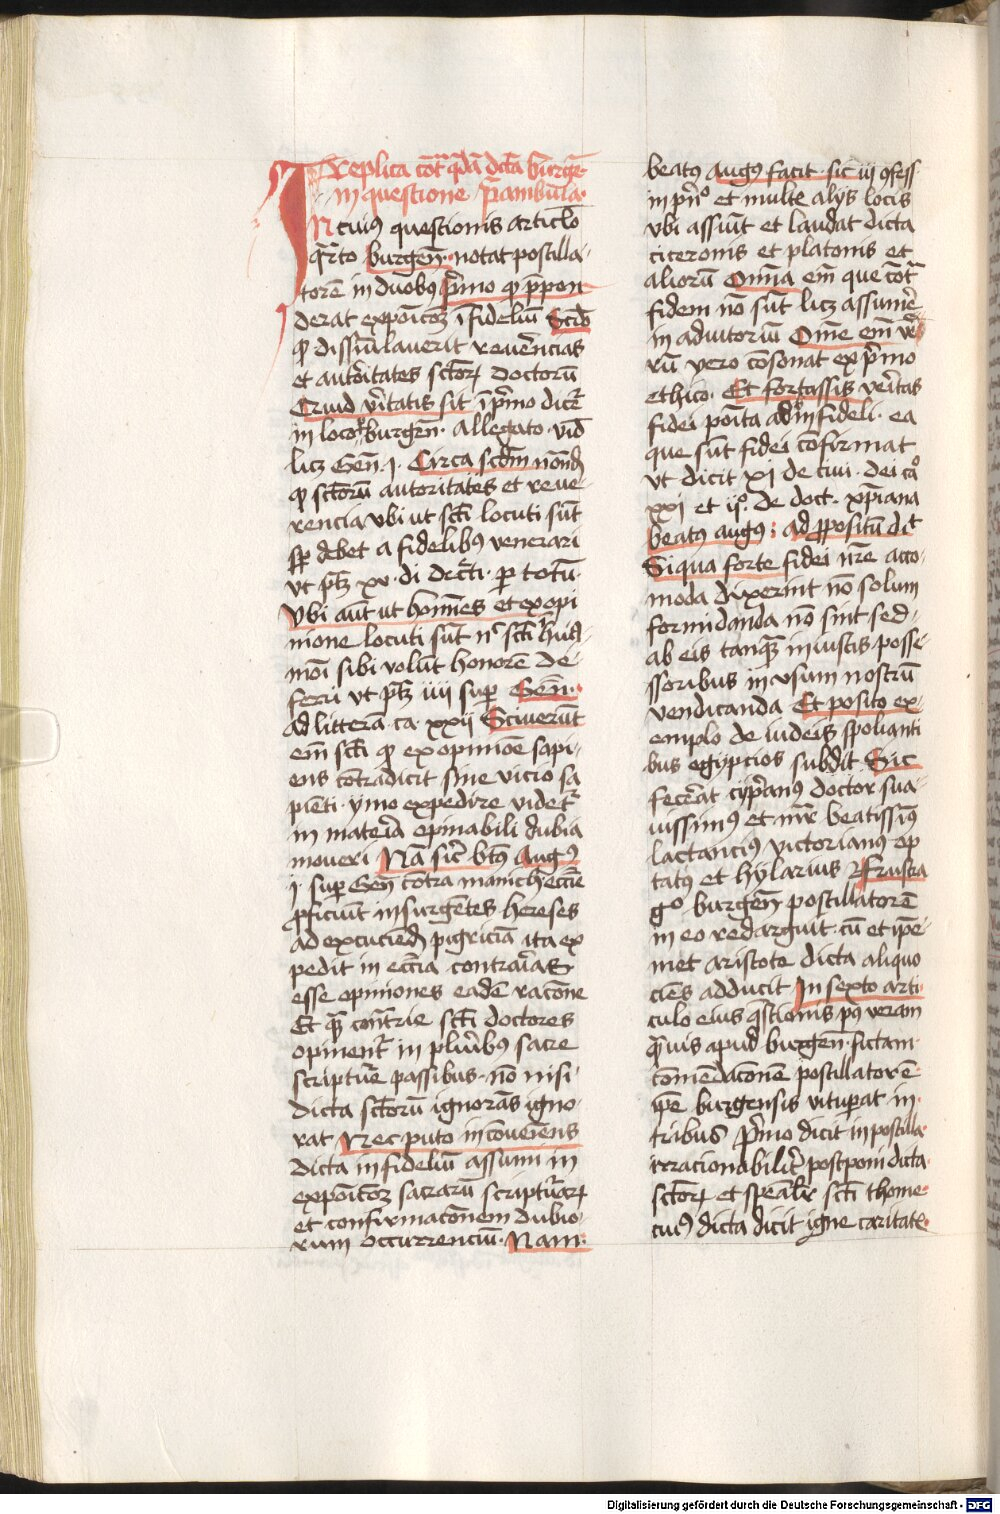 Replica cōt qdā dcā burgē
in questione p̄ambula
In cuiꝰ questionis articl̄o
q̄rto burgen̄ notat postilla
torē in duobꝰ p̄mo qꝫ p̄pon
derat expoīcōꝫ īfideliū Scd̄o
qꝫ dissiml̄auerit reuerēncias
et autōritates sctōrꝫ doctorū
Quid v̄itatis sit ī p̄mo dicēt
in loco burgen̄ allegato vid̄
licꝫ Gen̄ j Circa scdm nōnd̄
qꝫ sctōrū autoritates et reue
rencia vbi ut scti locuti sūt
sp̄ debet a fidelibꝰ venerari
vt ptꝫ xv di dect̄i p totū
Vbi aūt ut hoīnes et ex opi
nione locuti sūt nō scti huiꝰ
mōi sibi volūt honorē de
ferri vt ptꝫ iiii sup Gen̄
ad littera ca xxij Sciuerūt
em̄ scti qꝫ ex opinioē sapi
ens cōtradicit sine vicio sa
piēti ymo expedire videt
in materia opinabili dubia
moueri Nā sic btꝰ Augꝰ
j sup Gen̄ contra manich eccīe
proficiūt insurgētes hereses
ad excuciend̄ pigriciā ita ex
pedit in eccīa contrarias
esse opiniones eadē racōne
Et q̄ cōntrie scti doctores
opinent̄ in plūibus sacre
scripturē passibus nō nisi
dicta sctōrū ignorās igno
rat Nec puto incōueniens
dicta infideliū assumi in
expoīcōꝫ sacrarū scripturarꝫ
et confirmacōnem dubio
rum occurrenciū Nam
beatꝰ Augꝰ facit sic iij ꝯfess
in pn̄o et multe alijs locis
vbi assūit et laudat dicta
citeronis et platonis et
aliorū Om̄ia em̄ que cōt
fidem nō sūt licꝫ assumē
in adiutoriū Om̄e em̄ ve
rū vero cōsonat ex p̄mo
ethico Et fortassis v̄eritas
fidei poīta ab infideli ea
que sūt fidei cōfirmat
vt dicit xj de ciui dei cao
xxj et ijo de doct xp̄iana
beatꝰ augꝰ ad ꝓpositū dit
Siqua forte fidei nr̄e acco
moda dixerint nō solum
formidanda nō sint sed
ab eis tanquā iniustis posse
ssoribus in vsum nostrū
vendicanda Et posito ex
emplo de iudeis spolianti
bus egypcios subdit Sic
fecerat cyp̄anus doctor sua
uissimꝰ et nr̄ beatissiꝰ
lactanciꝰ victorianꝰ op
tatꝰ et hylarius Frustra
go burgen̄ postillatorē
in eo redarguit cū et ip̄e
met aristote dicta aliquo
ciēs adducit In sexto arti
culo eius q̄stionis pꝰ veram
q̄uis apud burgen̄ fictam
cōmēdacōnem postillatorē
ip̄e burgensis vituperat in
tribus p̄mo dicit in postilla
irracionabilit̄ postponi dicta
sctōrꝫ et sp̄ealit̄ scti thome
cuiꝰ dicta dicit igne caritatē
Digitalisierung gefördert durch die Deutsche Forschungsgemeinschaft - DFG